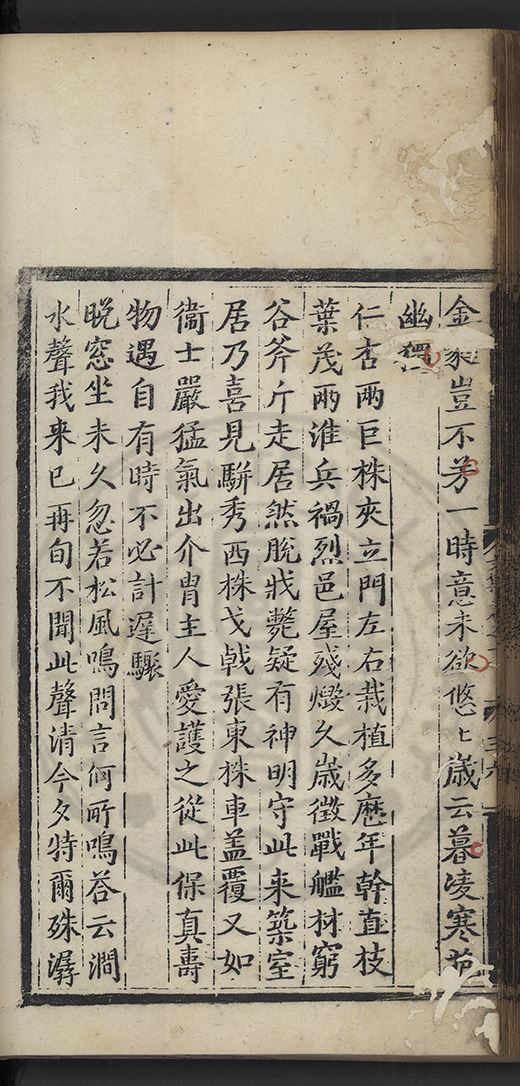 金 豈不芳一時意未欲悠〻歲云暮凌寒
幽獨
仁杏兩巨株夾立門左右栽植多歷年幹直枝
葉茂兩淮兵禍烈邑屋殘燬久歲徵戰艦材窮
谷斧斤走居然脫戕斃疑有神明守此来築室
居乃喜見駢秀西株戈戟張東株車盖覆又如
衞士嚴猛氣出介胄主人愛護之從此保真壽
物遇自有時不必計遲驟
晚窓坐未久忽若松風鳴問言何所鳴答云澗
水聲我来已再旬不聞此聲清今夕特爾殊潺